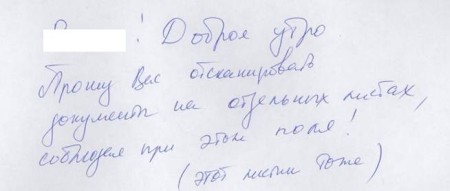 ! Доброе утро
Прошу Вас отсканировать
документы на отдельных листах,
соблюдая при этом поля!
(этот листик тоже)